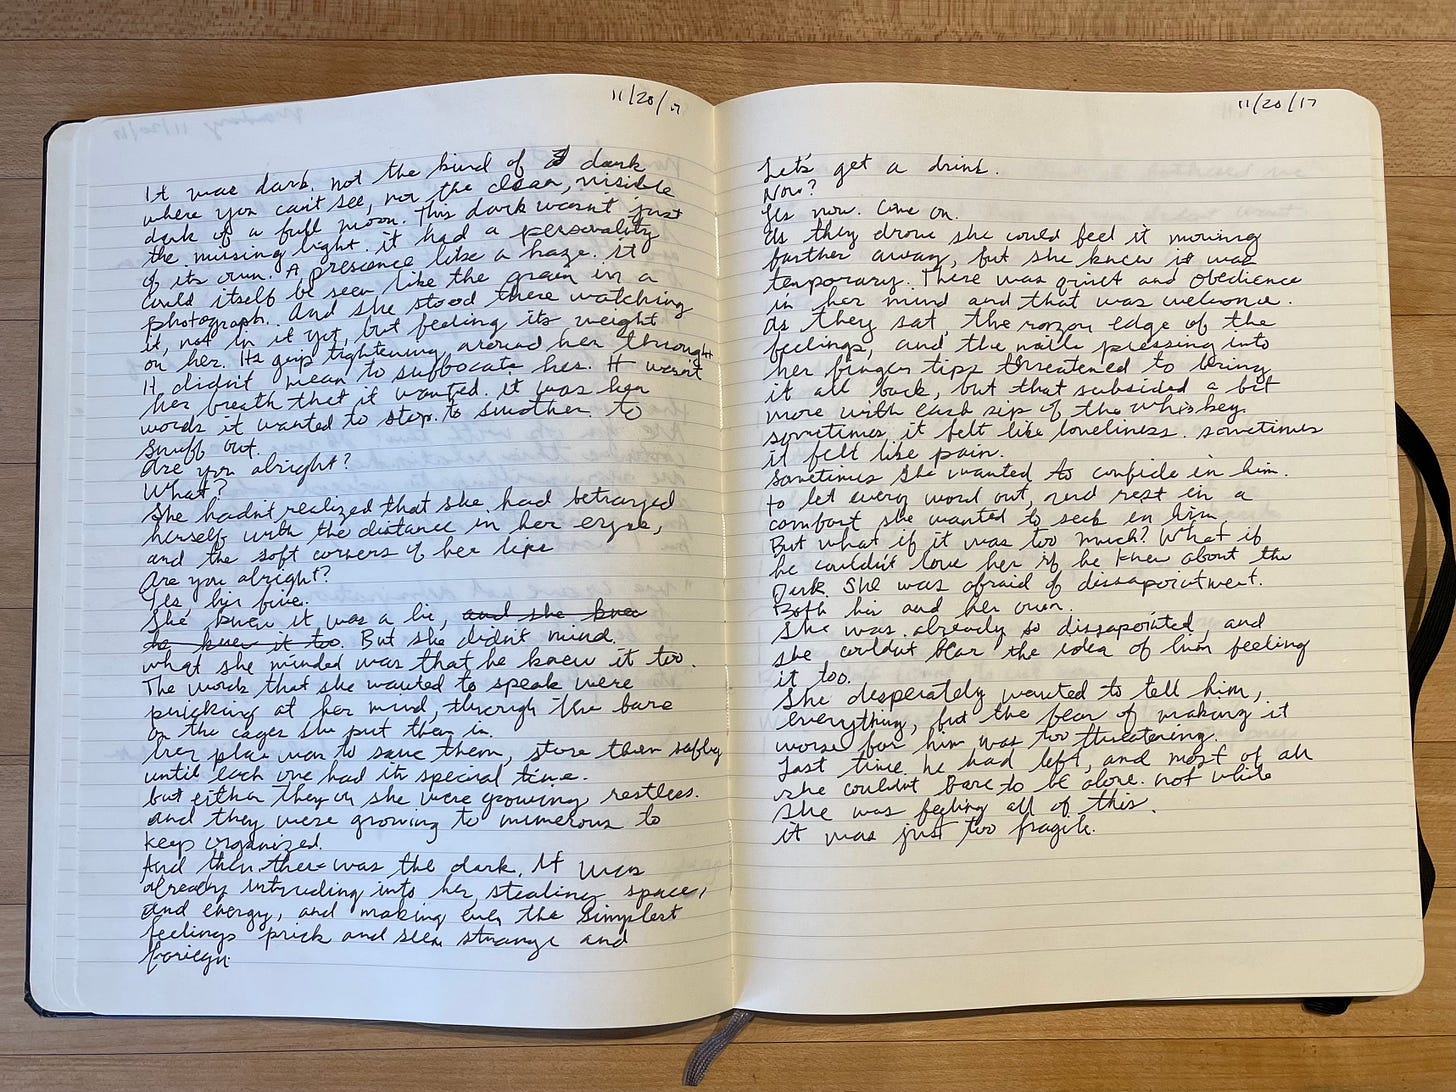 11/20/17
It was dark. not the kind of dark
where you can't see, nor the clean, visible
dark of a full moon. This dark wasn't just
the missing light. it had a personality
of its own. A prescence like a haze. it
could itself be seen like the grain in a
photograph. And she stood there watching
it, not in it yet, but feeling its weight
on her. Its grip tightening around her throught
It didn't mean to suffocate her. It wasn't
her breath that it wanted. it was her
words it wanted to stop. to smother. to
snuff out.
Are you alright?
What?
She hadn't realized that she had betrayed
herself with the distance in her eyes,
and the soft corners of her lips
Are you alright?
Yes, I'm fine.
She knew it was a lie, and she knew
he knew it too. But she didn't mind.
what she minded was that he knew it too.
The words that she wanted to speak were
pricking at her mind, through the bars
on the cages she put them in.
her plan was to save them, store them safley
until each one had its special time.
but either they or she were growing restless.
and they were growing to numerous to
keep organized.
And then there was the dark. It was
already intruding into her, stealing space,
and energy, and making even the simplest
feelings prick and seem strange and
foriegn.
11/20/17
Let's get a drink.
Now?
Yes now. Come on.
As they drove she could feel it moving
farther away, but she knew it was
temporary. There was quiet and obedience
in her mind and that was welcome.
As they sat, the razor edge of the
feelings, and the nails pressing into
her finger tips threatened to bring
it all back, but that subsided a bit
more with each sip of the whiskey.
sometimes it felt like loneliness. sometimes
it felt like pain.
Sometimes she wanted to confide in him.
to let every word out, and rest in a
comfort she wanted to seek in him
But what if it was too much? What if
he couldn't love her if he knew about the
Dark. She was afraid of dissapointment.
Both his and her own.
She was already so dissapointed, and
she couldn't bear the idea of him feeling
it too.
She desperately wanted to tell him,
everything, but the fear of making it
worse for him was too threatening.
Last time he had left, and most of all
she couldn't bare to be alone. not while
She was feeling all of this.
it was just too fragile.